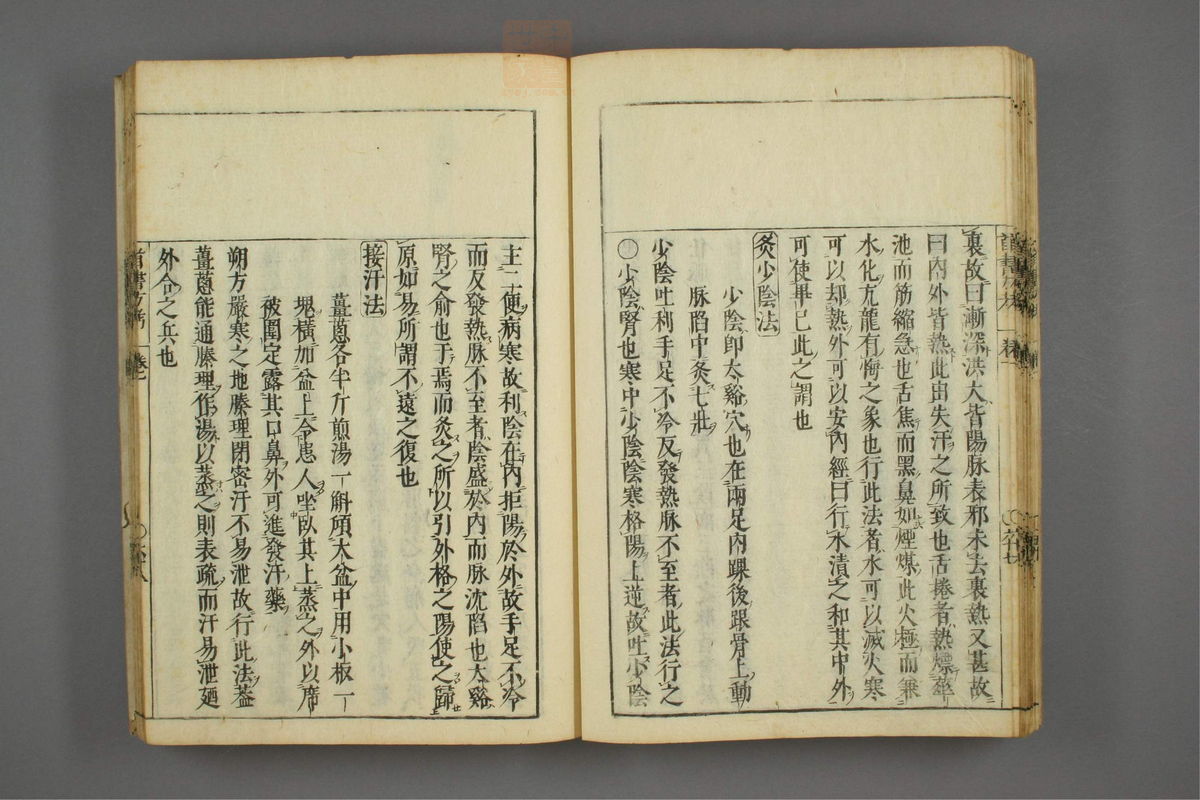 裏故曰漸深洪大皆陽脉表邪未去裏熱又甚故
曰内外皆熱此出失汗之所致也舌捲者熱爍
池而筋縮急也舌焦而黑鼻如煙煤此火極而兼
水化亢龍有悔之象也行此法者水可以滅火寒
可以却熱外可以安内經曰行水漬之和其中外
可使畢已此之謂也
灸少陰法
少陰即太谿穴也在兩足内踝後跟骨上動
脉陷中灸七壯
少陰吐利手足不冷反發熱脉不至者此法行之
○少陰腎也寒中少陰陰寒格陽上逆故吐少陰
主二便病寒故利陰在内拒陽於外故手足不冷
而反發熱脉不至者陰盛於内而脉沈陷也太谿
腎之俞也于焉而灸之所以引外格之陽使之歸
原如易所謂不遠之復也
接汗法
薑葱各半斤煎湯一斛頃大盆中用小板一
塊橫加盆上令患人坐臥其上蒸之外以席
被圍定露其口鼻外可進發汗藥
朔方嚴寒之地腠理閉密汗不易泄故行此法葢
薑葱能通腠理作湯以蒸之則表疏而汗易泄廼
外合之兵也